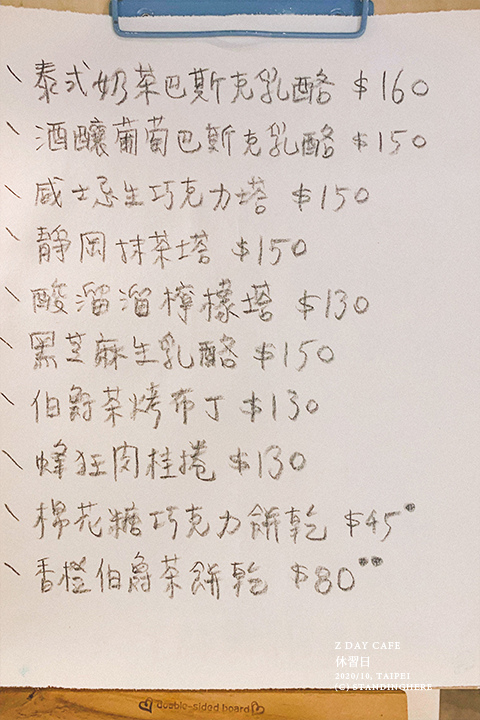 丶泰式奶茶巴斯克乳酪 $160
丶酒釀葡萄巴斯克乳酪 $150
丶威士忌生巧克力塔 $150
丶靜岡抹茶塔 $150
丶酸溜溜檸檬塔 $130
丶黑芝麻生乳酪 $150
丶伯爵茶烤布丁 $130
丶蜂狂肉桂捲 $130
丶棉花糖巧克力餅乾 $45*
丶香橙伯爵茶餅乾 $80**
Z DAY CAFE
休習日
2020/10, TAIPEI
(C) STANDINGHERE
double-sided board